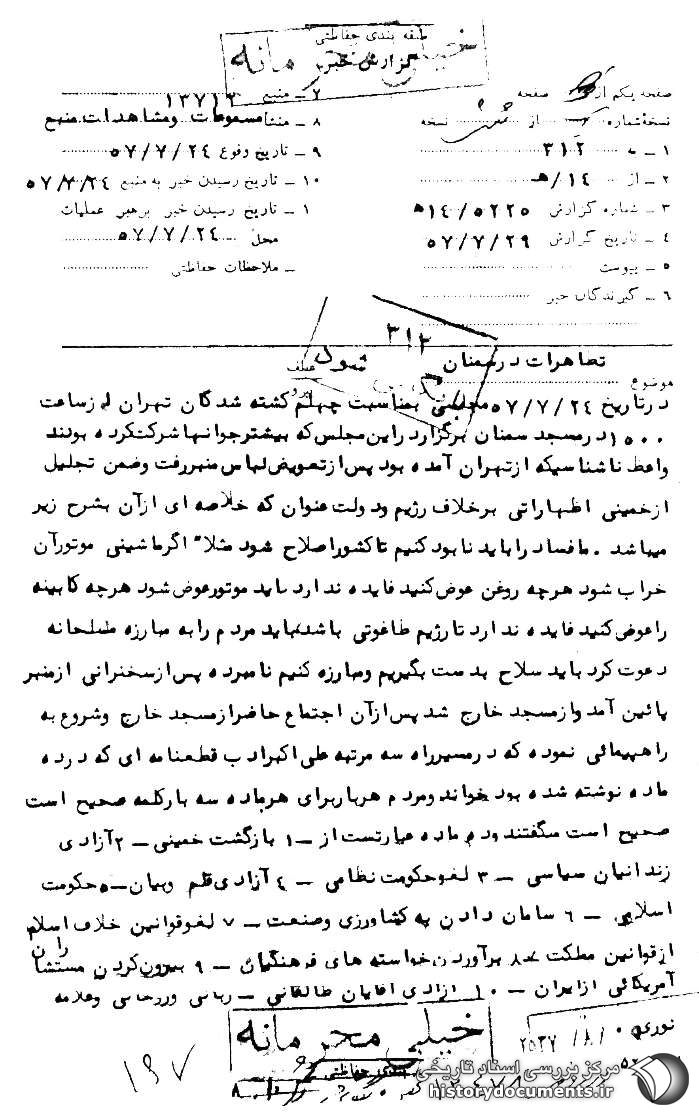 طبقه بندی حفاظتی
خیلی محرمانه
گزارش خبر
صفحه یکم از صفحه
نسخه شماره از شش نسخه
۱ ـ به ۳۱۲
۲ ـ از ۱۴/ هـ
۳ ـ شماره گزارش ۱۴/۵۲۲۵ هـ
۴ ـ تاریخ گزارش ۵۷/۷/۲۹
۵ ـ پیوست
۶ ـ گیرندگان خبر
۷ ـ منبع ۱۳۷۱۳
۸ ـ منشا مسموعات ومشاهدات منبع
۹ ـ تاریخ وقوع ۵۷/۷/۲۴
۱۰ ـ تاریخ رسیدن خبر به منبع ۵۷/۷/۲۴
۱ ـ تاریخ رسیدن خبر برهبر عملیات
محل ۵۷/۷/۲۴
ـ ملاحظات حفاظتی
۳۱۲
موضوع تظاهرات درسمنان
درتاریخ ۵۷/۷/۲۴ مجلسی بمناسبت چهلم کشته شدگان تهران از ساعت
۱۵۰۰ درمسجد سمنان برگزاردراین مجلس که بیشترجوانهاشرکت کرده بودند
واعظ ناشناسیکه ازتهران آمده بود پس ازتعویض لباس منبررفت وضمن تجلیل
ازخمینی اظهاراتی برخلاف رژیم ودولت عنوان که خلاصه ای ازآن بشرح زیر
میباشد . مافساد راباید نابود کنیم تاکشوراصلاح شود مثلا" اگرماشینی موتورآن
خراب شود هرچه روغن عوض کنید فایده ندارد باید موتورعوض شود هرچه کابینه
راعوض کنید فایده ندارد تارژیم طاغوتی باشد باید مردم رابه مبارزه مسلحانه
دعوت کرد باید سلاح بدست بگیریم ومبارزه کنیم نامبرده پس ازسخنرانی ازمنبر
پائین آمد وازمسجد خارج شد پس ازآن اجتماع حاضرازمسجد خارج وشروع به
راهپیمائی نموده که درمسیرراه سه مرتبه علی اکبرادب قطعنامه ای که درده
ماده نوشته شده بود خواند ومردم هربار برای هرماده سه بارکلمه صحیح است
صحیح است میگفتند وده ماده عبارتست از ـ ۱ بازگشت خمینی ـ ۲ آزادی
زندانیان سیاسی ـ ۳ لغوحکومت نظامی ـ ۴ آزادی قلم وبیان ـ ۵ حکومت
اسلامی ـ ۶ سامان دادن به کشاورزی وصنعت ـ ۷ لغوقوانین خلاف اسلام
ازقوانین مملکت ـ ۸ برآوردن خواسته های فرهنگیان ـ ۹ بیرون کردن مستشاران
آمریکائی ازایران ـ ۱۰ ازادی اقایان طالقانی ـ ربانی وعلامه
نوری
۲۵۳۷/۸/
خیلی محرمانه
۱۹۷
مرکز بررسی اسناد تاریخی
historydocuments.ir